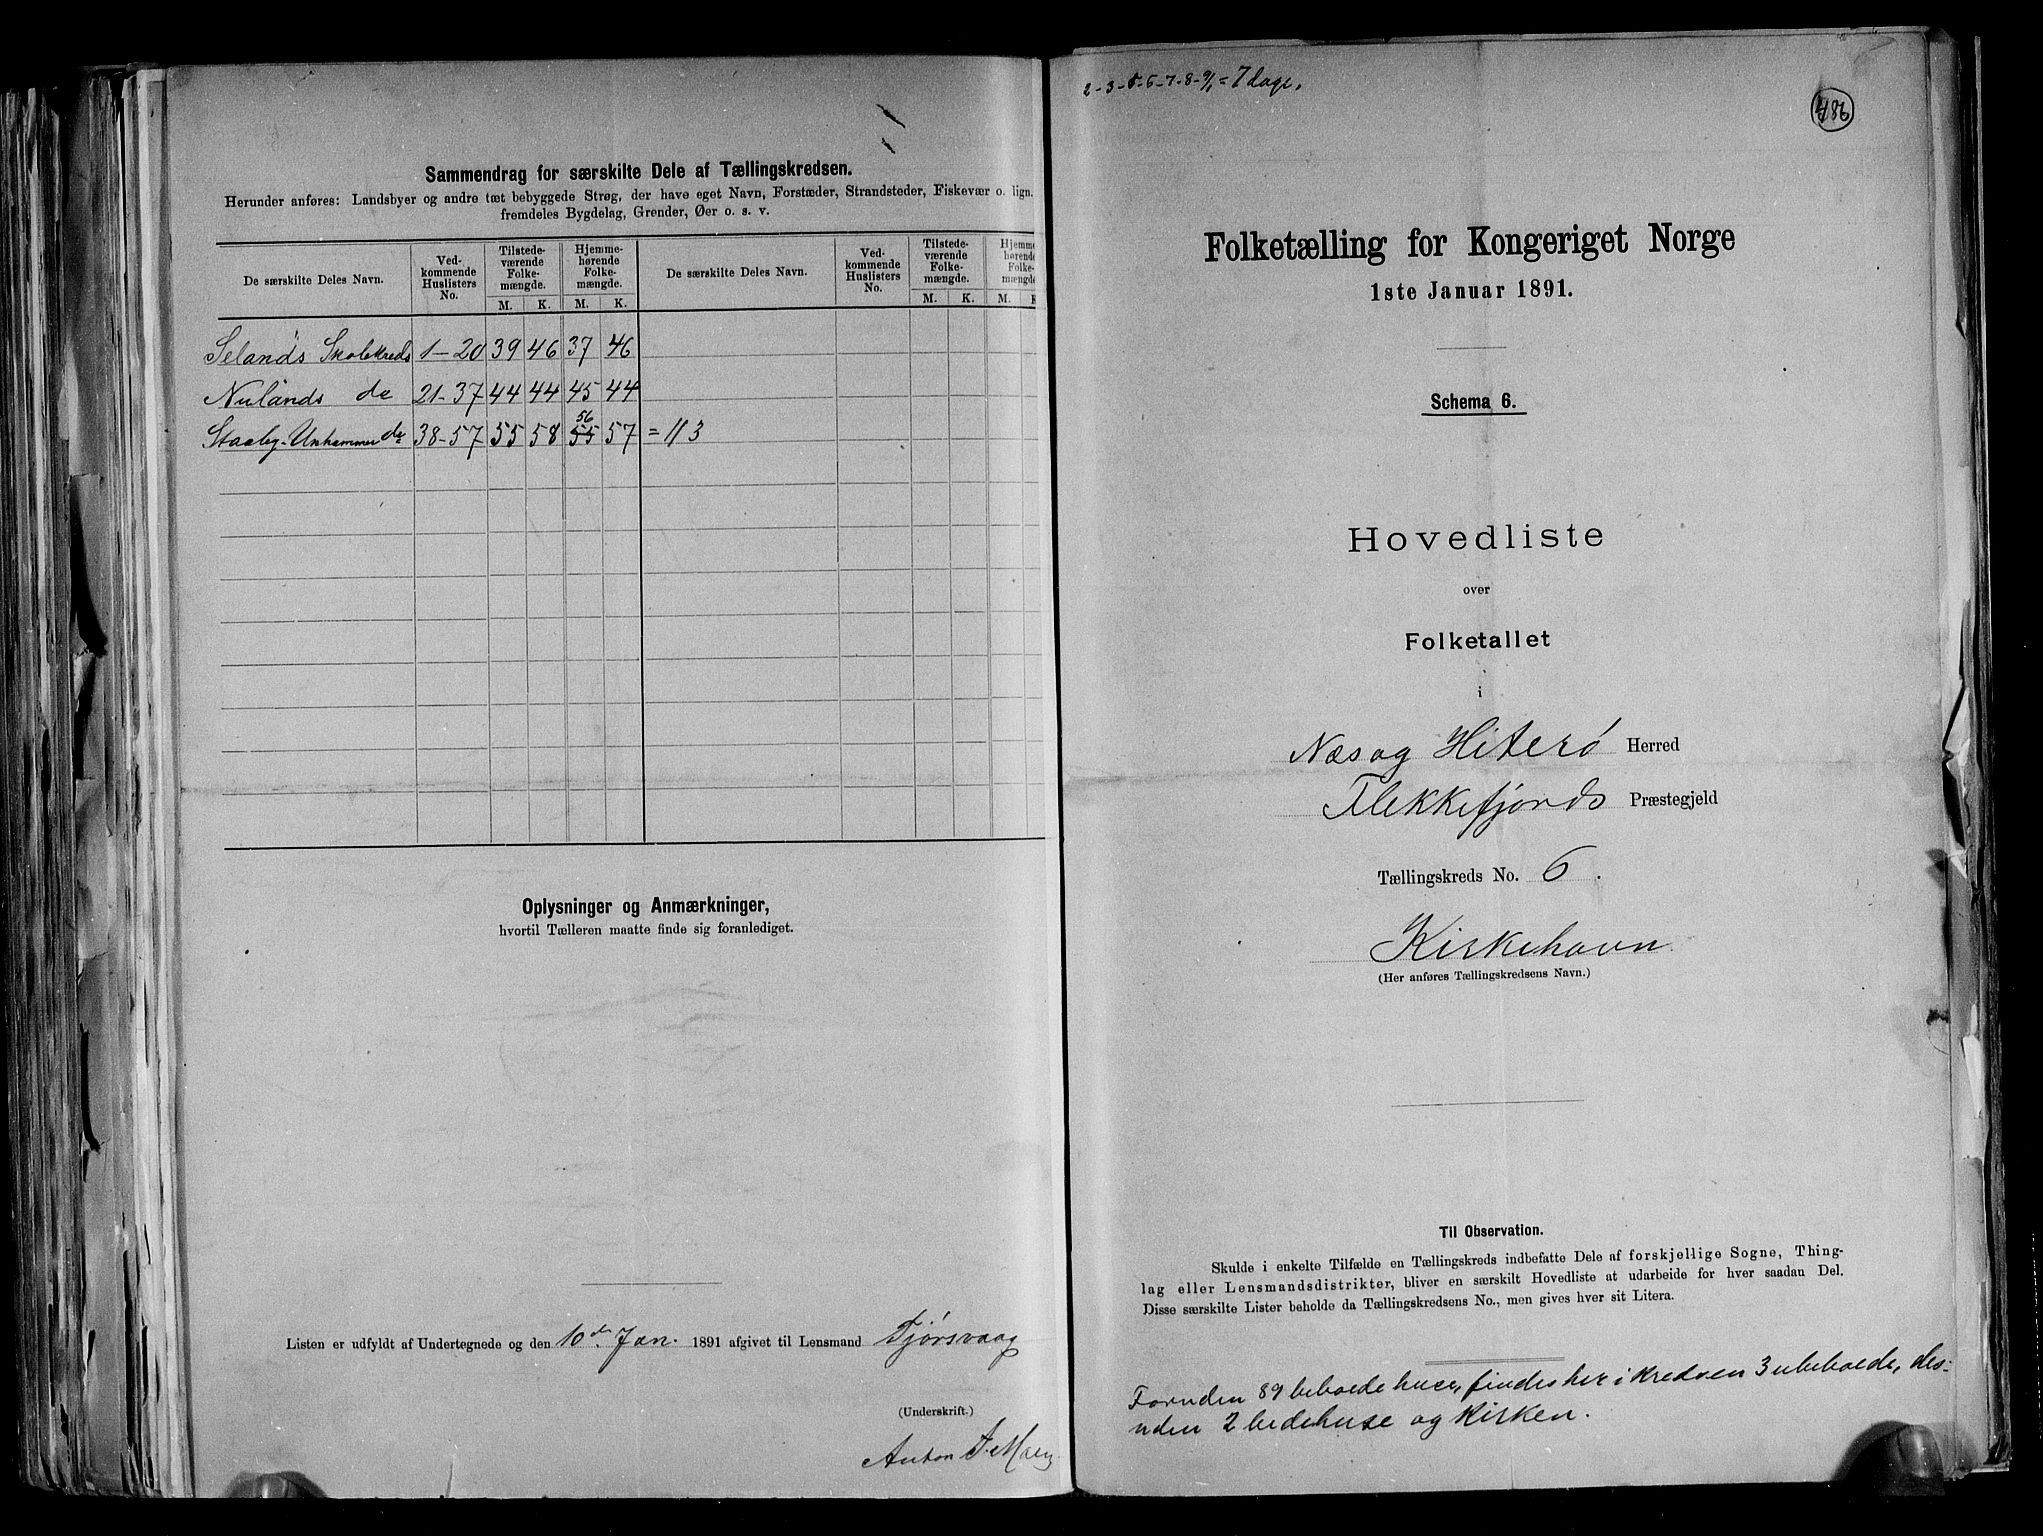 Sammendrag for særskilte Dele af Tællingskredsen.
Herunder anføres: Landsbyer og andre tæt bebyggede Strøg, der have eget Navn, Forstæder, Strandsteder, Fiskevær o. lign.
fremdeles Bygdelag, Grender, Øer o. s. v.
De særskilte Deles Navn. Ved-kommende Huslisters No. Tilstede-værende Folke-mængde. Hjemme-hørende Folke-mængde. De særskilte Deles Navn. Ved-kommende Huslisters No. Tilstede-værende Folke-mængde. Hjemme-hørende Folke-mængde
M. K. M. K. M. K. M. K
Selands Skolekreds 1-20 39 46 37 46
Nulands do 21-37 44 44 45 44
56
38-57 55 58 55 57 = 113
Oplysninger og Anmærkninger,
hvortil Tælleren maatte finde sig foranlediget.
Listen er udfyldt af Undertegnede og den 10de Jan. 1891 afgivet til Lensmand Tjørsvaag
(Underskrift.)
Anton
2-3-5-6-7-8-9/1 = 7 dage.
486
Folketælling for Kongeriget Norge
1ste Januar 1891.
Schema 6.
Hovedliste
over
Folketallet
i
Næs og Hiterø Herred
Flekkefjords Præstegjeld
Tællingskreds No. 6.
Kirkehavn
(Her anføres Tællingskredsens Navn.)
Til Observation.
Skulde i enkelte Tilfælde en Tællingskreds indbefatte Dele af forskjellige Sogne, Thing-
lag eller Lensmandsdistrikter, bliver en særskilt Hovedliste at udarbeide for hver saadan Del.
Disse særskilte Lister beholde da Tællingskredsens No., men gives hver sit Litera.
Foruden 89 beboede huse, findes her i kredsen 3 ubeboede, des-
uden 2 bedehuse og kirken.